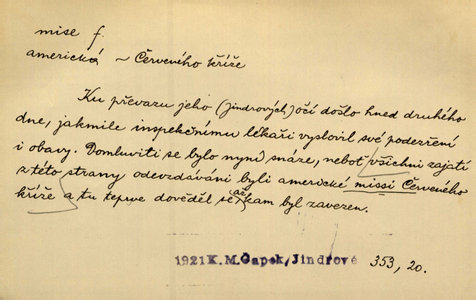 mise f.
americká ~ Červeného kříže
Ku převazu jeho (Jindrových) očí došlo hned druhého
dne, jakmile inspekčnímu lékaři vyslovil své podezření
i obavy. Domluviti se bylo nyní snáze, neboť všichni zajatí
z této strany odevzdáváni byli americké missi Červeného
kříže a tu teprve dověděl se, až kam byl zavezen.
1921 K. M. Čapek, Jindrové 353, 20.